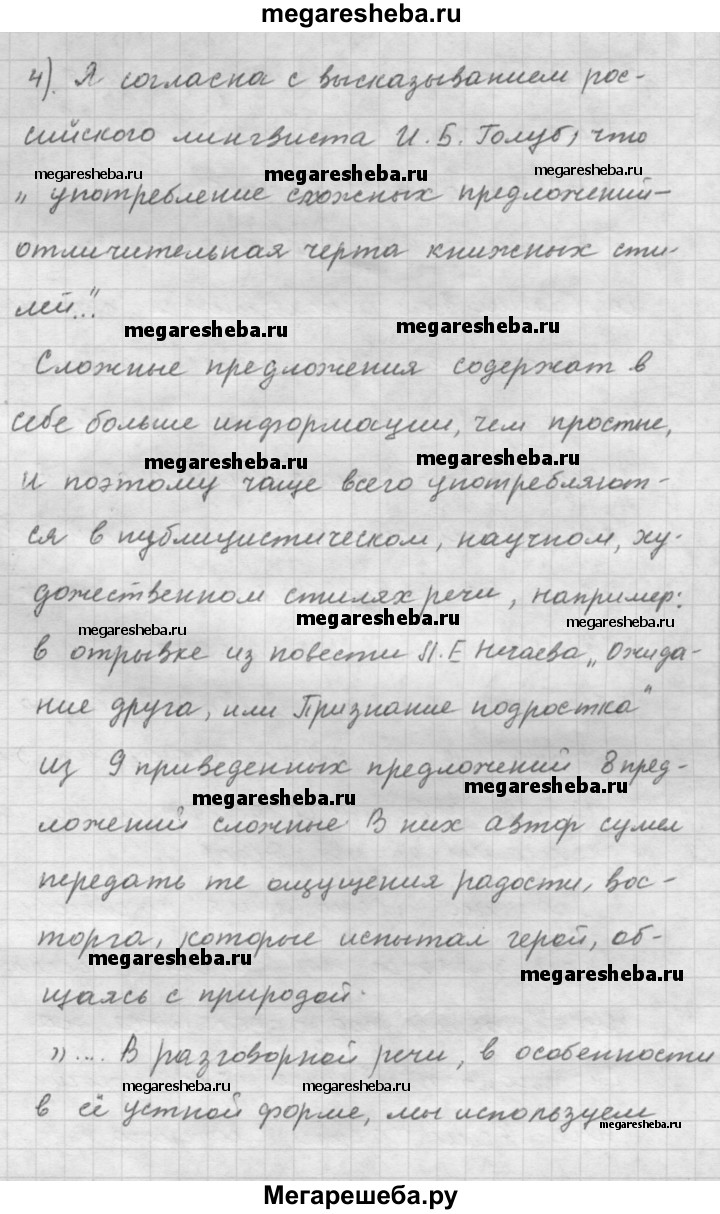 megaresheba.ru
4). Я согласна с высказыванием рос-
сийского лингвиста И. Б. Голуб, что
megaresheba.ru megaresheba.ru megaresheba.ru
„употребление сложных предложений–
отличительная черта книжных сти-
лей..."
megaresheba.ru megaresheba.ru
Сложные предложения содержат в
себе больше информации, чем простые,
megaresheba.ru megaresheba.ru
и поэтому чаще всего употребляют-
ся в публицистическом, научном, ху-
дожественном стилях речи, например:
megaresheba.ru megaresheba.ru megaresheba.ru
в отрывке из повести П.Е Нечаева „Ожида-
ние друга, или Признание подростка"
из 9 приведенных предложений 8 пред-
megaresheba.ru megaresheba.ru
ложений сложные В них автор сумел
передать те ощущения радости, вос-
торга, которые испытал герой, об-
megaresheba.ru megaresheba.ru
щаясь с природой.
„.... В разговорной речи, в особенности
megaresheba.ru megaresheba.ru
в её устной форме, мы используем
megaresheba.ru
Мегарешеба.ру